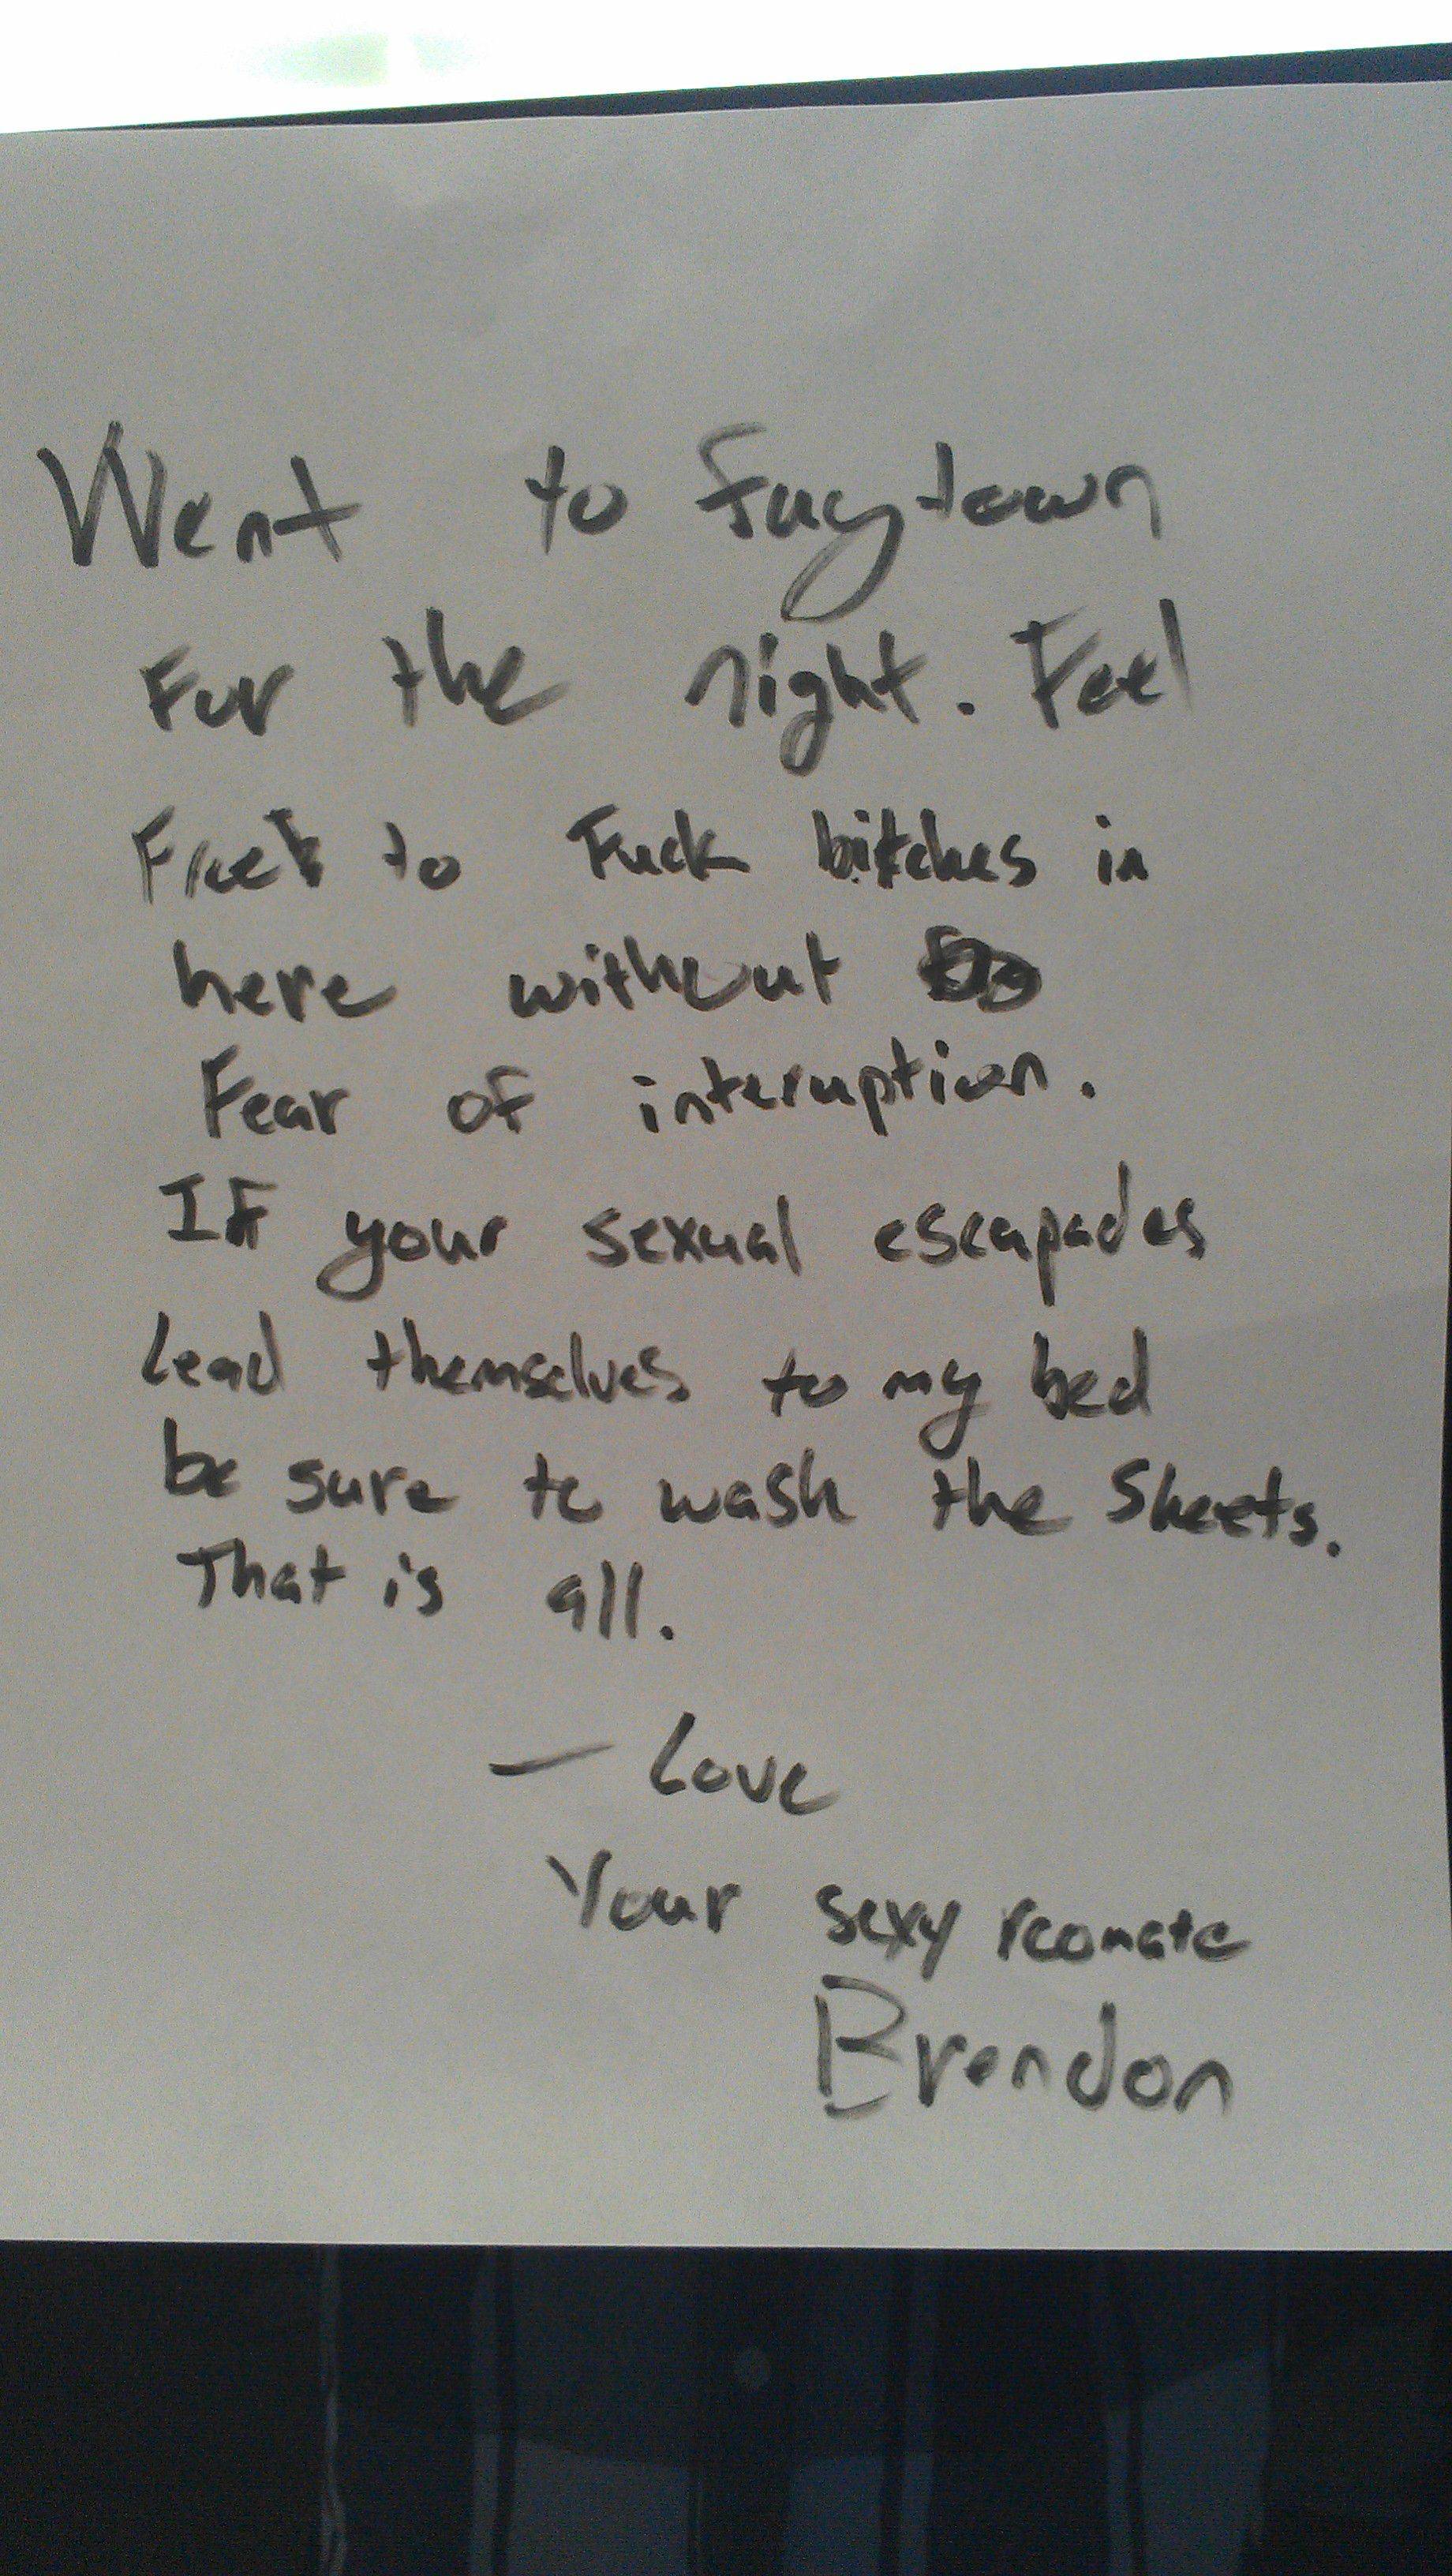 Went to Faytown
For the night. Feel
Free to Fuck bitches in
here without
Fear of interuption.
If your sexual escapades
lead themselves to my bed
be sure to wash the sheets.
That is all.
— Love
Your sexy roomate
Brendon